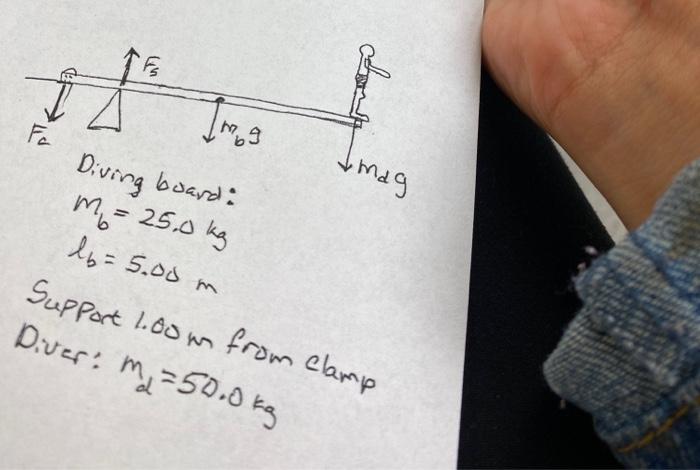 Fs
Fc
mbg
mdg
Diving board:
mb = 25.0 kg
lb = 5.00 m
Support 1.00 m from clamp
Diver: md = 50.0 kg